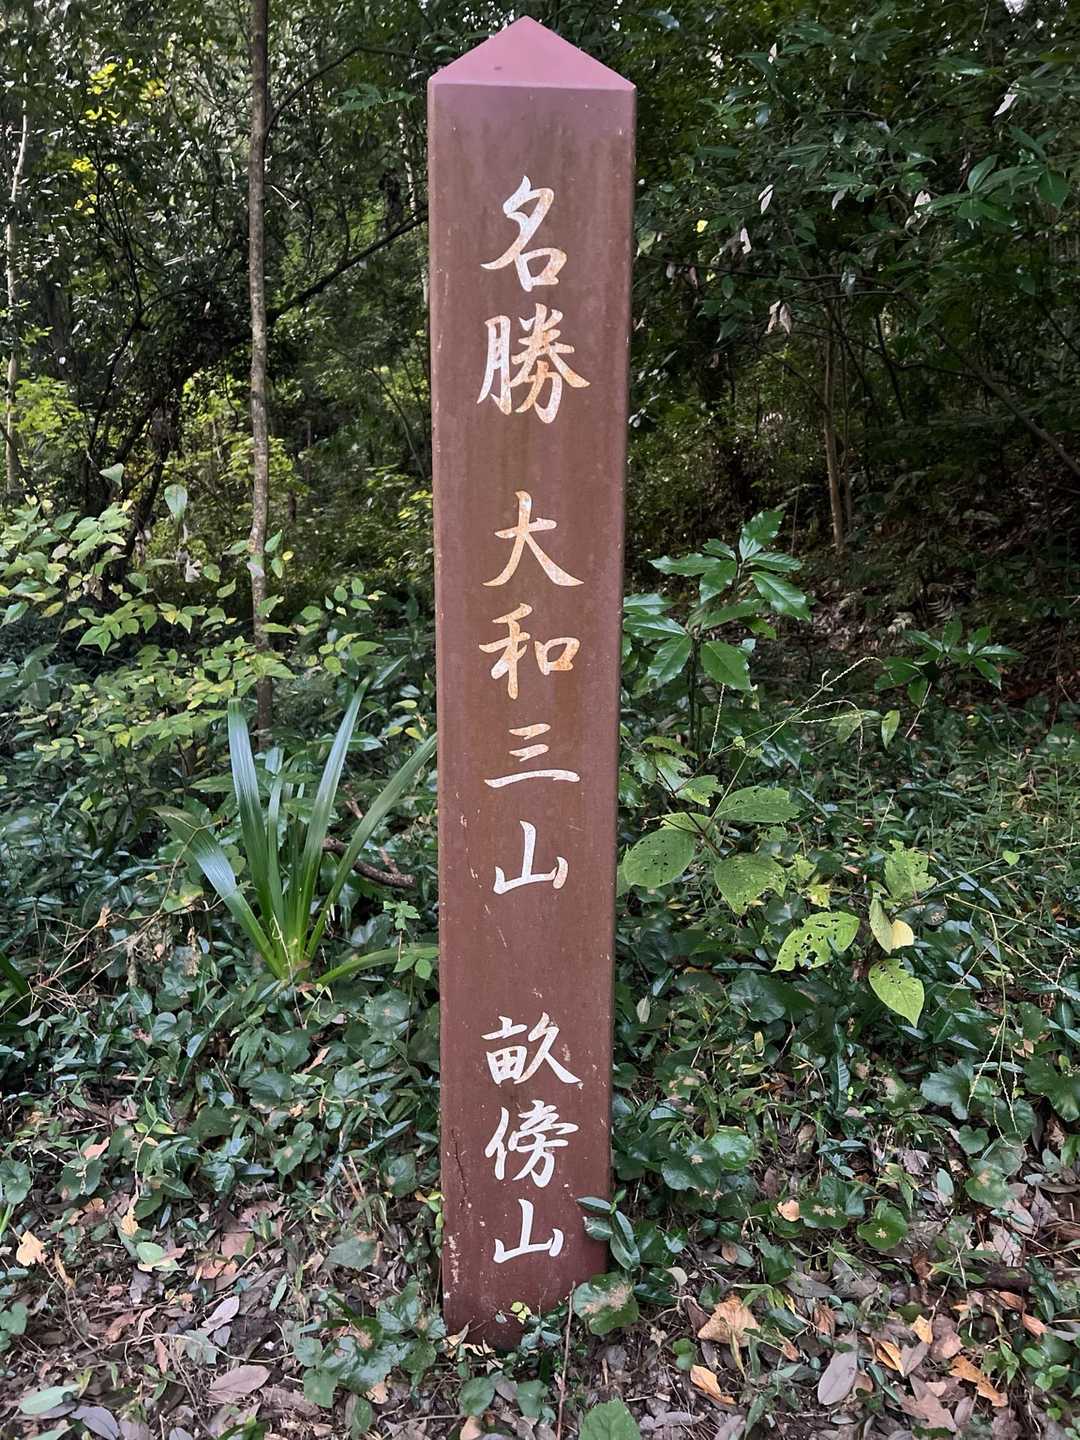 名勝 大和三山 畝傍山